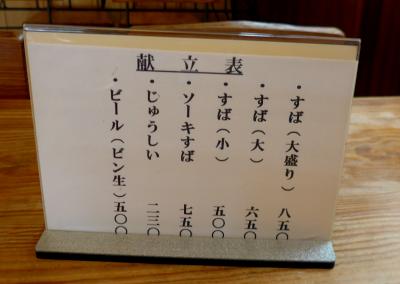 献立表
・すば(大盛り) 八五〇
・すば(大) 六五〇
・すば(小) 五〇〇
・ソーキすば 七五〇
・じゅうしい 二三〇
・ビール(ビン生)五〇〇